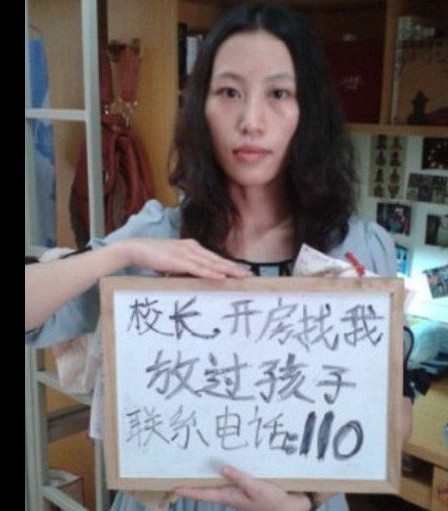 校长,开房找我
放过孩子
联系电话:110